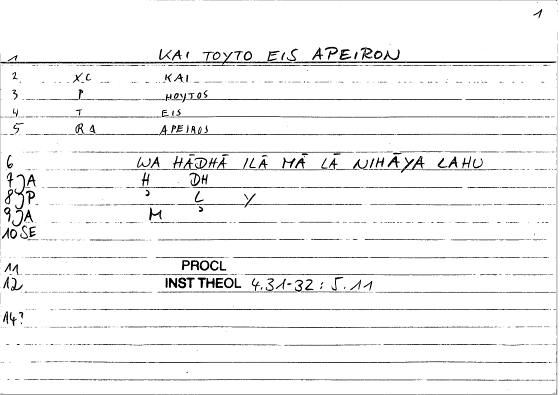 1
1 KAI TOYTO EIS APEIRON
2 XC KAI
3 P HOYTOS
4 T EIS
5 RA APEIROS
6 WA HĀDHĀ ILĀ MĀ LĀ NIHĀYA LAHU
7 JA H DH
8 JP ʾ L Y
9 JA M ʾ
10 SE
11 PROCL
12 INST THEOL 4.31-32 : 5.11
14?